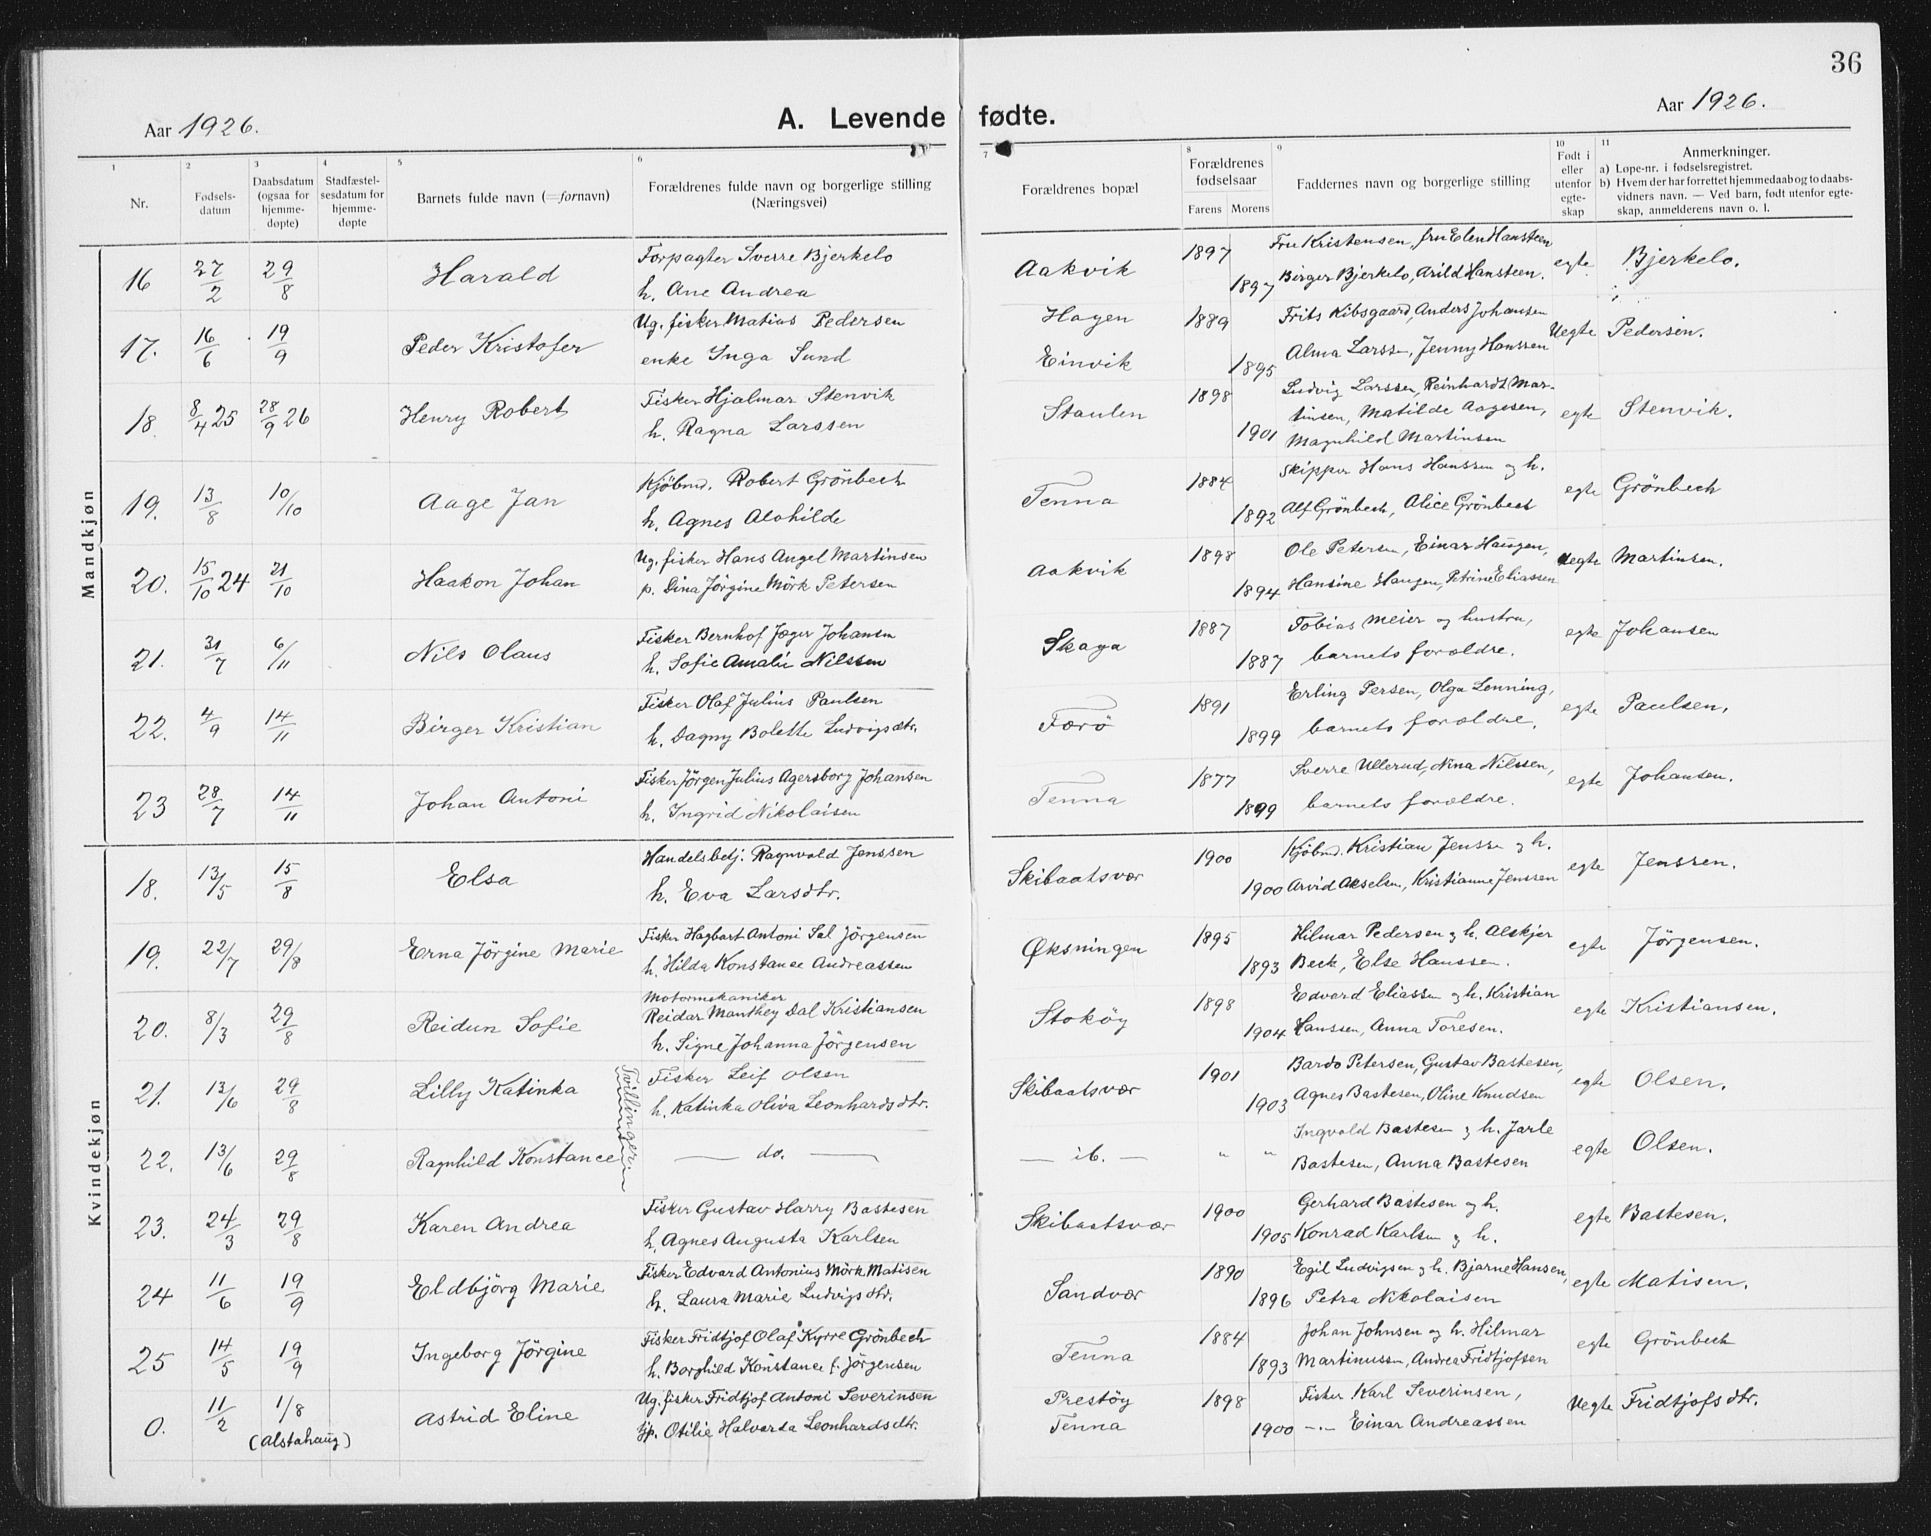 36
Aar 1926.
A. Levende fødte.
Aar 1926.
1 2 3 4 5 6 7 8 9 10 11
Nr.
Fødsels-
datum
Daabsdatum
(ogsaa for
hjemme-
døpte)
Stadfæstel-
sesdatum for
hjemme-
døpte
Barnets fulde navn (=fornavn)
Forældrenes fulde navn og borgerlige stilling
(Næringsvei)
Forældrenes bopæl
Forældrenes
fødselsaar
Farens Morens
Faddernes navn og borgerlige stilling
Født i
eller
utenfor
egte-
skap
Anmerkninger.
a) Løpe-nr. i fødselsregistret.
b) Hvem der har forrettet hjemmedaab og to daabs-
vidners navn. — Ved barn, født utenfor egte-
skap, anmelderens navn o. l.
Mandkjøn
16 27/2 29/8 Harald Forpagter Sverre Bjerkelo Aakvik 1897 Fru Kristensen, fru Elen Hansteen egte Bjerkelo.
h. Ane Andrea 1897 Birger Bjerkelo, Arild Hansteen.
17. 16/6 19/9 Peder Kristofer Ug. fisker Matias Pedersen Hagen 1889 Frits Kibsgaard, Anders Johansen Uegte Pedersen.
enke Inga Sund Einvik 1895 Alma Larssen, Jenny Hanssen
18. 8/4 25 28/9 26 Henry Robert Fisker Hjalmar Stenvik Staulen 1898 Ludvig Larssen, Reinhardt Mar-
h. Ragna Larssen 1901 tinsen, Matilde Aagesen, egte Stenvik.
Magnhild Martinsen
19. 13/8 10/10 Aage Jan Kjöbmd. Robert Grönbech Tenna 1884 Skipper Hans Hanssen og h. egte Grönbech
h. Agnes Alvhilde 1892 Alf Grönbech, Alice Grönbech
20. 15/10 24 21/10 Haakon Johan Ug. fisker Hans Angel Martinsen Aakvik 1898 Ole Petersen, Einar Haugen, Uegte Martinsen.
p. Dina Jörgine Mörk Petersen 1894 Hansine Haugen, Petrine Eliassen
21. 31/7 6/11 Nils Olaus Fisker Bernhof Jæger Johansen Skaga 1887 Tobias Meier og hustru, egte Johansen
h. Sofie Amalie Nilssen 1887 barnets forældre.
22. 4/9 14/11 Birger Kristian Fisker Olaf Julius Paulsen Færö 1891 Erling Persen, Olga Lenning, egte Paulsen,
h. Dagny Bolette Ludvigsdtr. 1899 barnets forældre.
23 28/7 14/11 Johan Antoni Fisker Jörgen Julius Agersborg Johansen Tenna 1877 Sverre Ullerud, Nina Nilssen, egte Johansen.
h. Ingrid Nikolaisen 1899 barnets forældre.
Kvindekjøn
18. 13/5 15/8 Elsa Handelsbetj. Ragnvald Jenssen Skibaatsvær 1900 Kjöbmd. Kristian Jenssen og h. egte Jenssen.
h. Eva Larsdtr. 1900 Arvid Akselsen, Kristianne Jenssen
19. 22/7 29/8 Erna Jörgine Marie Fisker Hagbart Antoni Sal Jörgensen Øksningen 1895 Hilmar Pedersen og h. Alskjer egte Jörgensen.
h. Hilda Konstance Andreassen 1893 Beck, Else Hanssen.
20. 8/3 29/8 Reidun Sofie Motormekaniker
Reidar Manthey Dal Kristiansen Stoköy 1898 Edvard Eliassen og h. Kristian egte Kristiansen.
h. Signe Johanna Jörgensen 1904 Hanssen, Anna Toresen.
21. 13/6 29/8 Lilly Katinka Tvillinger Fisker Leif Olsen Skibaatsvær 1901 Bardo Petersen, Gustav Bastesen, egte Olsen.
h. Katinka Oliva Leonhardsdtr. 1903 Agnes Bastesen, Oline Knudsen
22. 13/6 29/8 Ragnhild Konstance — do. — — ib. — " " Ingvald Bastesen og h. Jarle egte Olsen.
Bastesen, Anna Bastesen
23. 24/3 29/8 Karen Andrea Fisker Gustav Harry Bastesen Skibaatsvær 1900 Gerhard Bastesen og h. egte Bastesen.
h. Agnes Augusta Karlsen 1905 Konrad Karlsen og h.
24 11/6 19/9 Eldbjörg Marie Fisker Edvard Antonius Mörk Matisen Sandvær 1890 Egil Ludvigsen og h. Bjarne Hansen, egte Matisen.
h. Laura Marie Ludvigsdtr. 1896 Petra Nikolaisen
25 14/5 19/9 Ingeborg Jörgine Fisker Fridtjof Olaf Kyrre Grönbech Tenna 1884 Johan Johnsen og h. Hilmar egte Grönbech
h. Borghild Konstance f. Jörgensen 1893 Martinussen, Andrea Fridtjofsen
0. 11/2 1/8 Astrid Eline Ug. fisker Fridtjof Antoni Severinsen Prestöy 1898 Fisker Karl Severinsen, Uegte Fridtjofsdtr.
(Alstahaug) Otilie Halvarda Leonhardsdtr. Tenna 1900 —"— Einar Andreassen